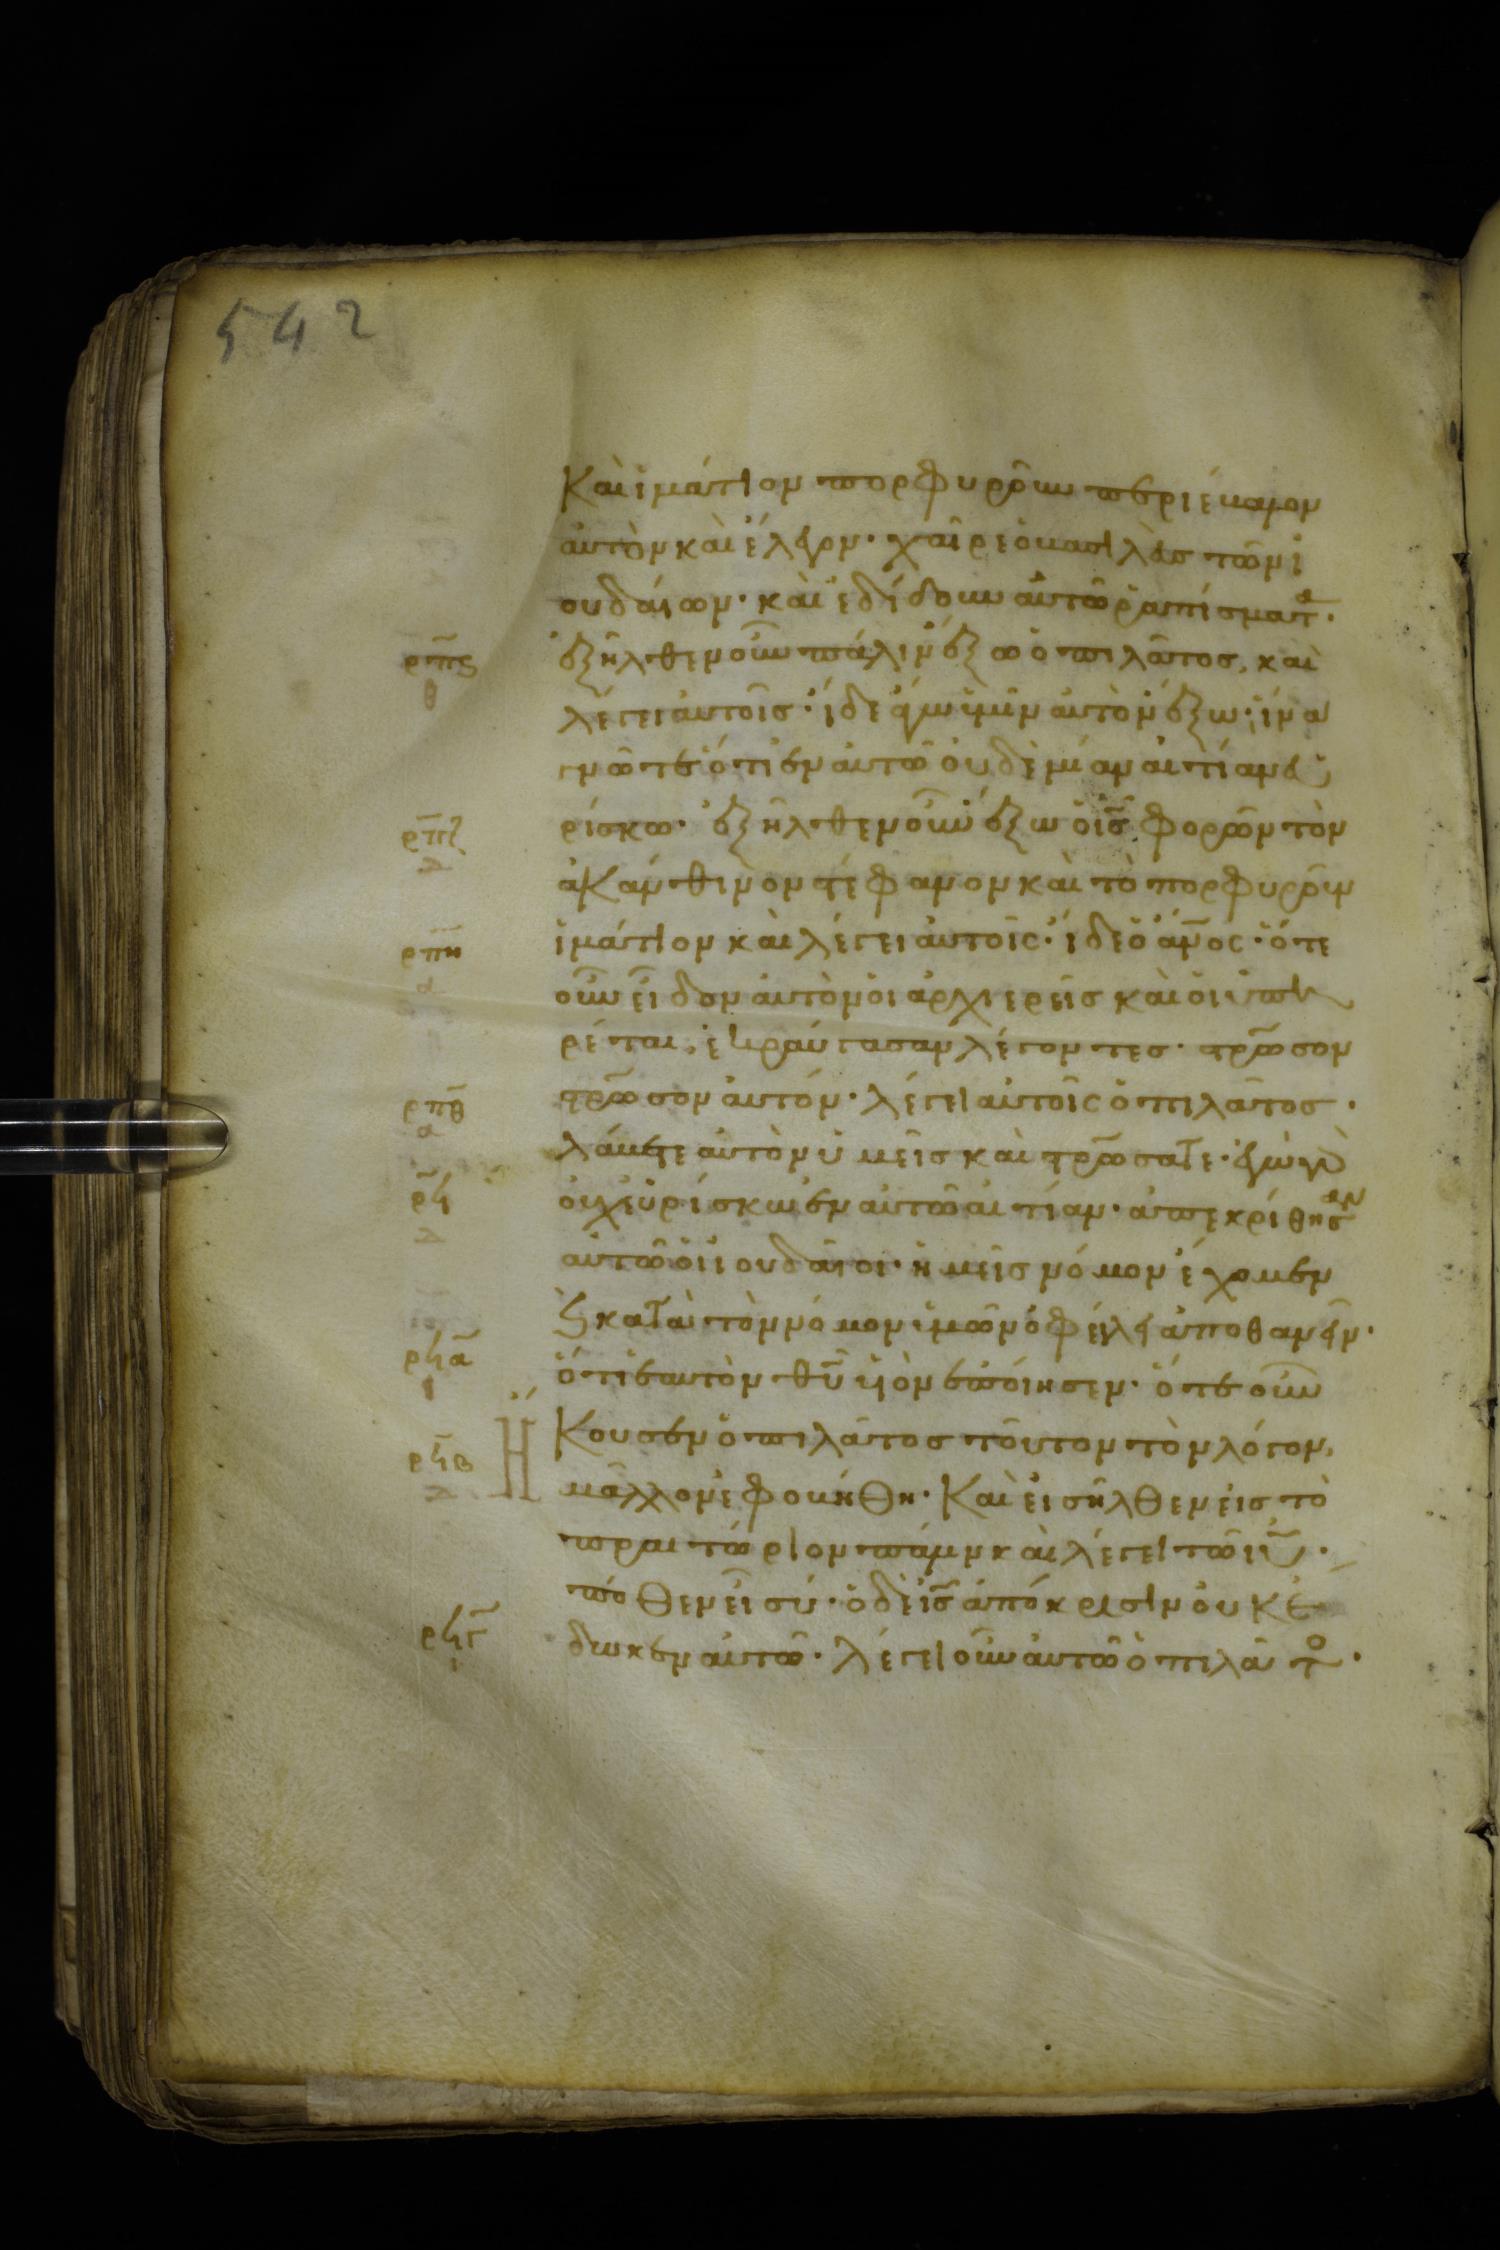 542
Καὶ ἱμάτιον πορφυροῦν περιέβαλον
αὐτὸν καὶ ἔλεγον· χαῖρε ὁ βασιλεὺς τῶν ἰ
ουδαίων· καὶ ἐδίδουν αὐτῶ ῥαπίσματα·
ρπϛ θ ἐξῆλθεν οὖν πάλιν ἔξω ὁ πιλᾶτος, καὶ
λέγει αὐτοῖς· ἴδε ἄγω ὑμῖν αὐτὸν ἔξω· ἵνα
γνῶτε ὅτι ἐν αὐτῶ οὐδὲ μίαν αἰτίαν εὑ
ρπζ δ ρίσκω· ἐξῆλθεν οὖν ἔξω ὁ ι̅ς̅ φορῶν τὸν
ἀκάνθινον στέφανον καὶ τὸ πορφυροῦν
ρπη α ἱμάτιον καὶ λέγει αὐτοῖς· ἴδε ὁ α̅ν̅ο̅ς̅· ὅτε
οὖν εἶδον αὐτὸν οἱ ἀρχιερεῖς καὶ οἱ ὑπη
ρέται, ἐκραύγασαν λέγοντες· σταύρωσον
ρπθ α σταύρωσον αὐτόν· λέγει αὐτοῖς ὁ πιλᾶτος·
λάβετε αὐτὸν ὑμεῖς καὶ σταυρώσατε· ἐγὼ γὰρ
ρϟ δ οὐχ εὑρίσκω ἐν αὐτῶ αἰτίαν· ἀπεκρίθησαν
αὐτῶ οἱ ἰουδαῖοι· ἡμεῖς νόμον ἔχομεν
ϗ κατὰ τὸν νόμον ἡμῶν ὀφείλει ἀποθανεῖν·
ρϟα ι ὅτι ἑαυτὸν θ̅υ̅ υἱὸν ἐποίησεν· ὅτε οὖν
ρϟβ δ Ἤκουσεν ὁ πιλᾶτος τοῦτον τὸν λόγον,
μᾶλλον ἐφοβήθη· Καὶ εἰσῆλθεν εἰς τὸ
πραιτώριον πάλιν καὶ λέγει τῶ ι̅υ̅·
πόθεν εἶ σύ· ὁ δὲ ι̅ς̅ ἀπόκρισιν οὐκ ἔ
ρϟγ ι δωκεν αὐτῶ· λέγει οὖν αὐτῶ ὁ πιλᾶτος·